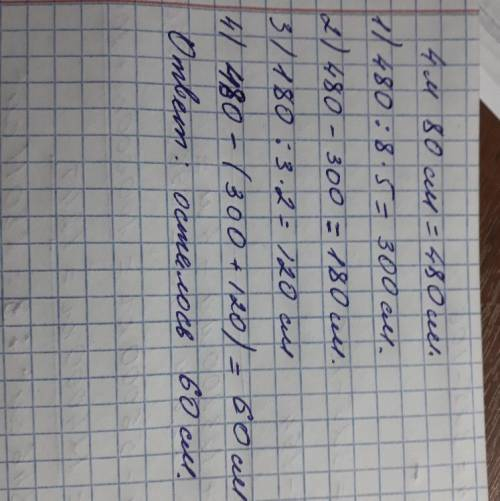 4м 80 см = 480 см.
1) 480 : 8 · 5 = 300 см.
2) 480 - 300 = 180 см.
3) 180 : 3 · 2 = 120 см
4) 480 - (300 + 120) = 60 см
Ответ: осталось 60 см.